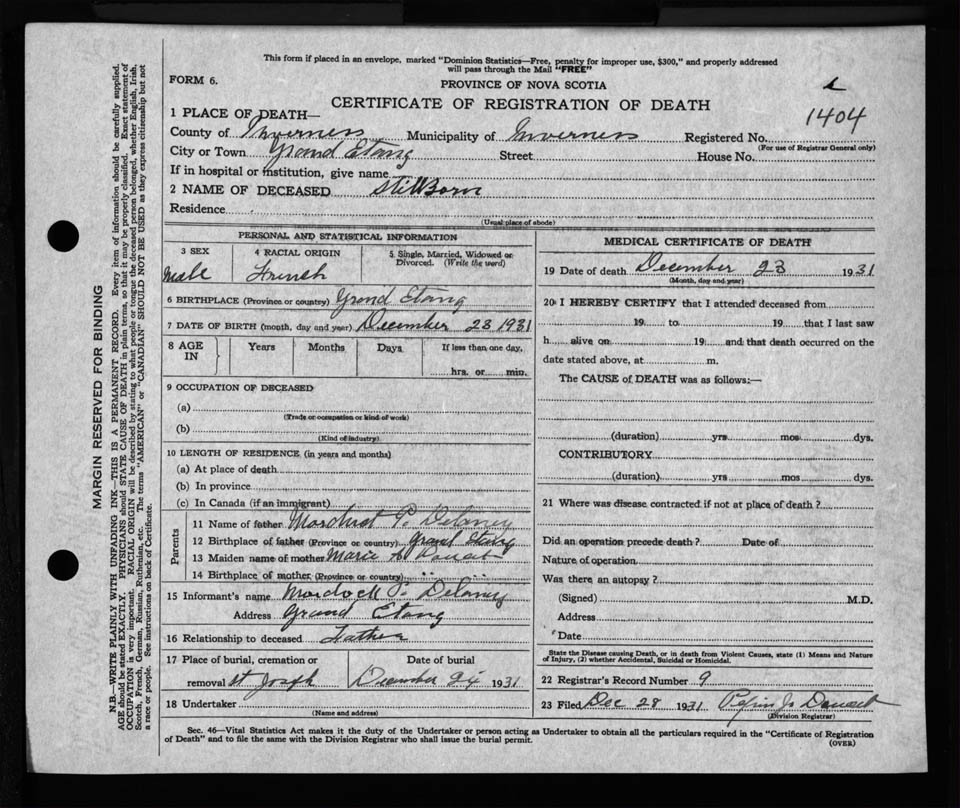 This form if placed in an envelope, marked "Dominion Statistics—Free, penalty for improper use, $300," and properly addressed
will pass through the Mail "FREE"
FORM 6.
PROVINCE OF NOVA SCOTIA
CERTIFICATE OF REGISTRATION OF DEATH
1404
1 PLACE OF DEATH—
County of Inverness Municipality of Inverness Registered No.
(For use of Registrar General only)
City or Town Grand Etang Street House No.
If in hospital or institution, give name
2 NAME OF DECEASED StillBorn
Residence
(Usual place of abode)
PERSONAL AND STATISTICAL INFORMATION
3 SEX 4 RACIAL ORIGIN 5 Single, Married, Widowed or Divorced. (Write the word)
Male French
6 BIRTHPLACE (Province or country) Grand Etang
7 DATE OF BIRTH (month, day and year) December 23 1931
8 AGE IN Years Months Days If less than one day,
hrs. or min.
9 OCCUPATION OF DECEASED
(a)
(Trade or occupation or kind of work)
(b)
(Kind of industry)
10 LENGTH OF RESIDENCE (in years and months)
(a) At place of death
(b) In province
(c) In Canada (if an immigrant)
Parents
11 Name of father P. Delaney
12 Birthplace of father (Province or country) Grand Etang
13 Maiden name of mother Marie A Doucet
14 Birthplace of mother (Province or country) " "
15 Informant's name Murdock P. Delaney
Address Grand Etang
16 Relationship to deceased Father
17 Place of burial, cremation or Date of burial
removal St Joseph December 24 1931
18 Undertaker
(Name and address)
MEDICAL CERTIFICATE OF DEATH
19 Date of death December 23 1931
(Month, day and year)
20 I HEREBY CERTIFY that I attended deceased from
19 to 19 that I last saw
h alive on 19 and that death occurred on the
date stated above, at m.
The CAUSE of DEATH was as follows:—
(duration) yrs mos dys.
CONTRIBUTORY
(duration) yrs mos dys.
21 Where was disease contracted if not at place of death?
Did an operation precede death? Date of
Nature of operation
Was there an autopsy?
(Signed) M.D.
Address
Date
State the Disease causing Death, or in death from Violent Causes, state (1) Means and Nature
of Injury, (2) whether Accidental, Suicidal or Homicidal.
22 Registrar's Record Number 9
23 Filed Dec 28 1931 Doucet
(Division Registrar)
Sec. 46—Vital Statistics Act makes it the duty of the Undertaker or person acting as Undertaker to obtain all the particulars required in the "Certificate of Registration
of Death" and to file the same with the Division Registrar who shall issue the burial permit.
(OVER)
MARGIN RESERVED FOR BINDING
N.B.—WRITE PLAINLY WITH UNFADING INK—THIS IS A PERMANENT RECORD. Every item of information should be carefully supplied.
AGE should be stated EXACTLY. PHYSICIANS should STATE CAUSE OF DEATH in plain terms, so that it may be properly classified. Exact statement of
OCCUPATION is very important. RACIAL ORIGIN will be described by stating to what people or tongue the deceased person belonged, whether English, Irish,
Scotch, French, German, Russian, Ruthenian, etc. The terms "AMERICAN" or "CANADIAN" SHOULD NOT BE USED as they express citizenship but not
a race or people. See instructions on back of Certificate.